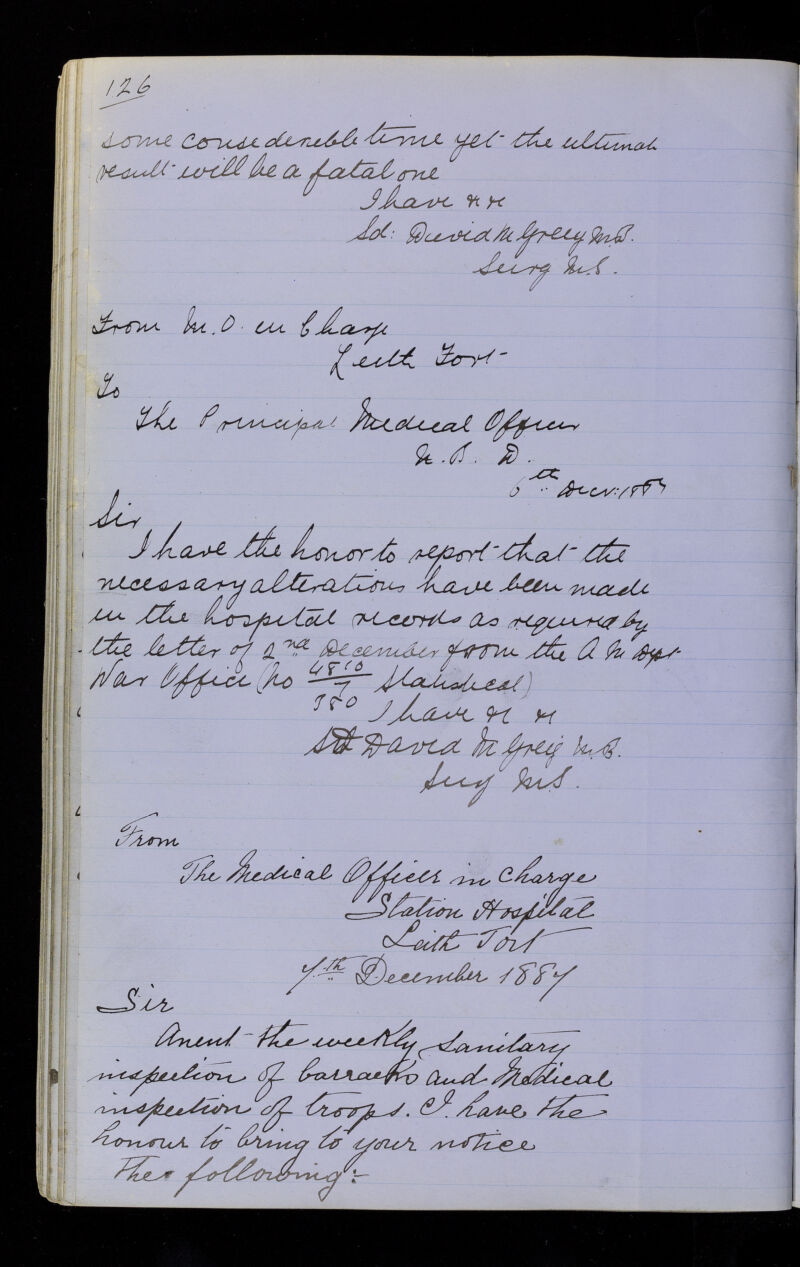 126
some considerable time yet the ultimate
result will be a fatal one
I have &c &c
Sd: David M Greig M.B.
Surg M.S.
From M.O. in Charge
Leith Fort
To
The Principal Medical Officer
N. B. D.
6th Decr: 1887
Sir
I have the honor to report that the
necessary alterations have been made
in the hospital records as required by
the letter of 2nd December from the A M Dept
War Office (No 4810/7/380 Statistical)
I have &c &c
Sd David M Greig M.B.
Surg M.S.
From
The Medical Officer in Charge
Station Hospital
Leith Fort
7th December 1887
Sir
Anent the weekly Sanitary
inspection of barracks and Medical
inspection of troops. I have the
honour to bring to your notice
the following:-